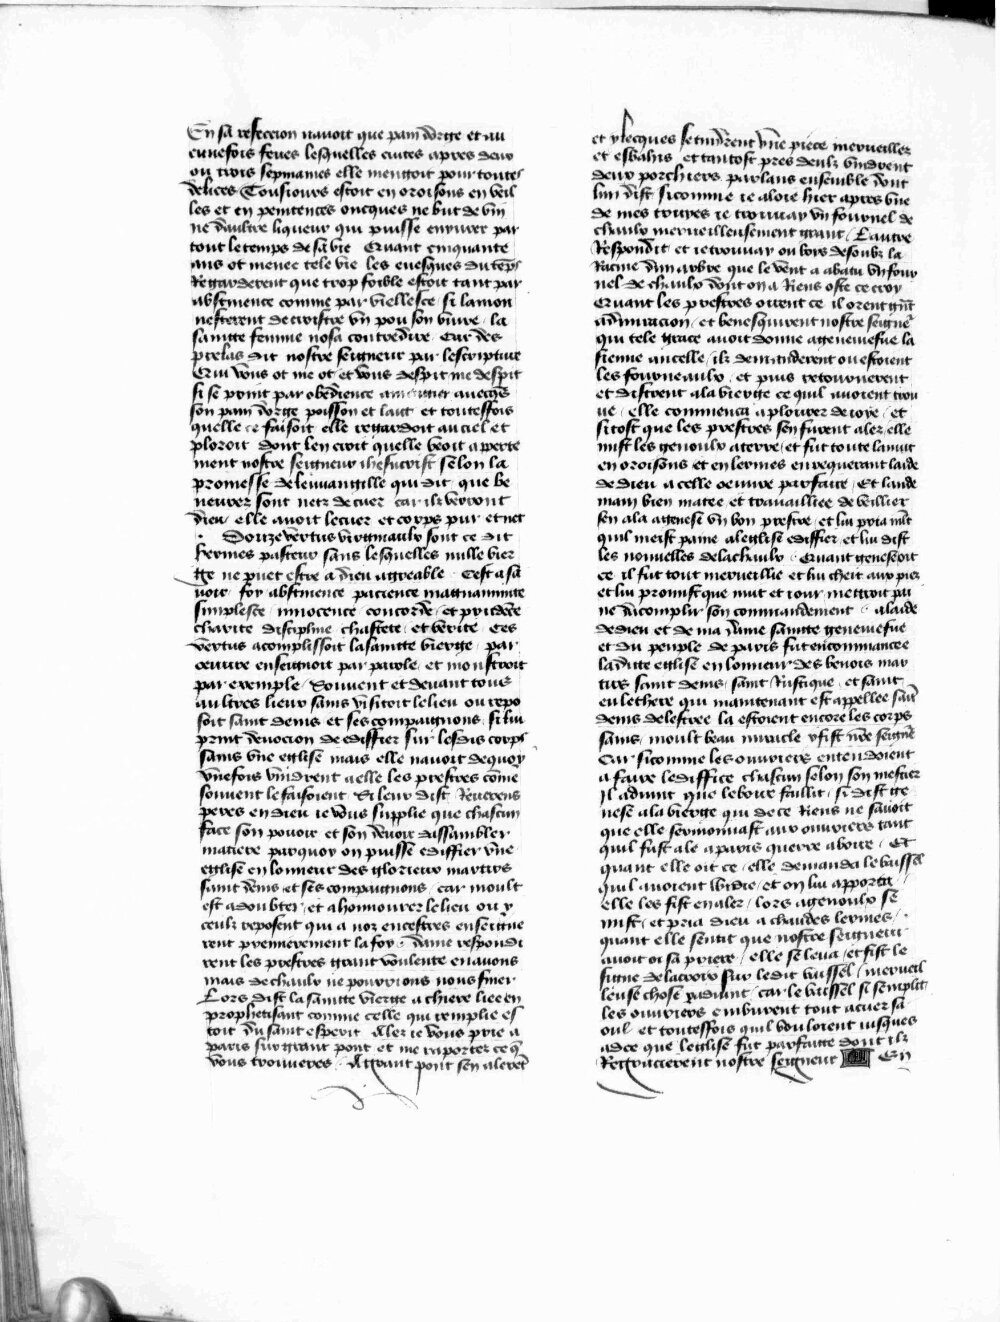 En sa refeccion nauoit que pain dorge et au
cunefois feues lesquelles cuites apres deux
ou trois sepmaines elle mengoit pour toutes
delices Tousiours estoit en oroisons en veil
les et en penitences oncques ne but de vin
ne daultre liqueur qui puisse enyurer par
tout le temps de sa vie Quant cinquante
ans ot menee tele vie les euesques du temps
Regarderent que trop foible estoit tant par
abstinence comme par viellesce si lamon
nesterent de croistre vn pou son viure la
saincte femme nosa contredire Car des
prelas dit nostre seigneur par lescripture
Qui vous ot me ot et vous despit me despit
si se print par obedience a mengier auecques
son pain dorge poisson et lait et touteffois
quelle ce faisoit elle regardoit au ciel et
ploroit dont len croit quelle veoit apperte
ment nostre seigneur ihesucrist selon la
promesse de leuuangille qui dit que be
neurez sont netz de cuer car ilz verront
dieu elle auoit le cuer et corps pur et net
Douze vertus virginaulx sont ce dit
hermes pasteur sans lesquelles nulle vier
ge ne puet estre a dieu agreable Cest a sa
uoir foy abstinence pacience magnanimite
simplesce innocence concorde et prudence
charite discipline chastete et verite Ces
vertus acomplissoit la saincte vierge par
oeuure enseignoit par parole et monstroit
par exemple Souuent et deuant tous
aultres lieux sains visitoit le lieu ou repo
soit saint denis et ses compaignons si lui
print deuocion de ediffier sur lesdis corps
sains vne eglise mais elle nauoit de quoy
vnefois vindrent a elle les prestres come
souuent le faisoient Si leur dist Reuerens
peres en dieu ie vous supplie que chascun
face son pouoir et son deuoir dassambler
matiere par quoy on puisse ediffier vne
eglise en lonneur des glorieux martirs
saint denis et ses compaignons car moult
est a doubter et a honnourer le lieu ou y
ceulx reposent qui a noz ancestres enseigne
rent premierement la foy dame respondi
rent les prestres grant voulente en auons
mais de chaulx ne pourrions nous finer
Lors dist la saincte vierge a chiere liee en
prophetisant comme celle qui remplie es
toit du saint esperit Alez ie vous prie a
paris sur grant pont et me raportez ce que
vous trouuerez A grant pont sen alerent
et ylecques se tindrent vne piece merueillez
et esbahis et tantost pres deulx vindrent
deux porchiers parlans ensemble dont
lun dist sicomme ie aloie hier apres vne
de mes truyes ie trouuay vn fournel de
chaulx merueilleusement grant Lautre
Respondit et ie trouuay ou bois desoubz la
Racine dun arbre que le vent a abatu vn four
nel de chaulx dont on a Riens oste ce croy
Quant les prestres oirent ce il orent grant
admiracion et benesquirent nostre seigneur
qui tele grace auoit donne a geneuiefue la
sienne ancelle ilz demanderent ou estoient
les fourneaulx et puis retournerent
et distrent a la vierge ce quil auoient trou
ue elle commenca a plourer de ioye et
sitost que les prestres sen furent alez elle
mist les genoulx a terre et fut toute la nuit
en oroisons et en lermes en requerant laide
de dieu a celle oeuure parfaire Et lande
main bien matee et trauailliee de veillier
sen ala a genese vn bon prestre et lui pria mlt
quil meist paine a leglise ediffier et lui dist
les nouuelles de la chaulx Quant genese oit
ce il fut tout merueillie et lui cheit aux piez
et lui promist que nuit et iour mettroit pai
ne dacomplir son commandement a laide
de dieu et de ma dame saincte geneuiefue
et du peuple de paris fut encommancee
la dite eglise en lonneur des benois mar
tirs saint denis saint Rustique et saint
eulethere qui maintenant est appellee saint
denis de lestree la estoient encore les corps
sains moult beau miracle y fist nostre seigneur
Car sicomme les ouuriers entendoient
a faire lediffice chascun selon son mestier
Il aduint que le boire faillit si dist ge
nese a la vierge qui de ce Riens ne sauoit
que elle sermonnast aux ouuriers tant
quil fust ale a paris querre a boire Et
quant elle oit ce elle demanda le vaissel
quil auoient widie et on lui apporta
elle les fist en aler lors a genoulx se
mist et pria dieu a chaudes lermes
quant elle sentit que nostre seigneur
auoit oi sa priere elle se leua et fist le
signe de la croix sur ledit vaissel merueil
leuse chose y aduint car le vaissel si semplit
les ouuriers en burent tout a cuer sa
oul et touteffois quil voulurent iusques
ad ce que leglise fut parfaicte dont ilz
Regracierent nostre seigneur En